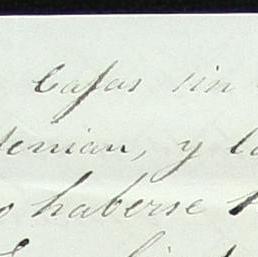 Casas sin
tenian, y la
haberse